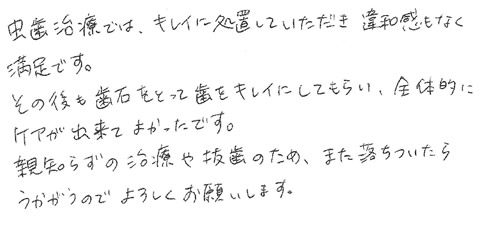 虫歯治療では、キレイに処置していただき 違和感もなく
満足です。
その後も歯石をとって歯をキレイにしてもらい、全体的に
ケアが出来てよかったです。
親知らずの治療や抜歯のため、また落ちついたら
うかがうので よろしくお願いします。